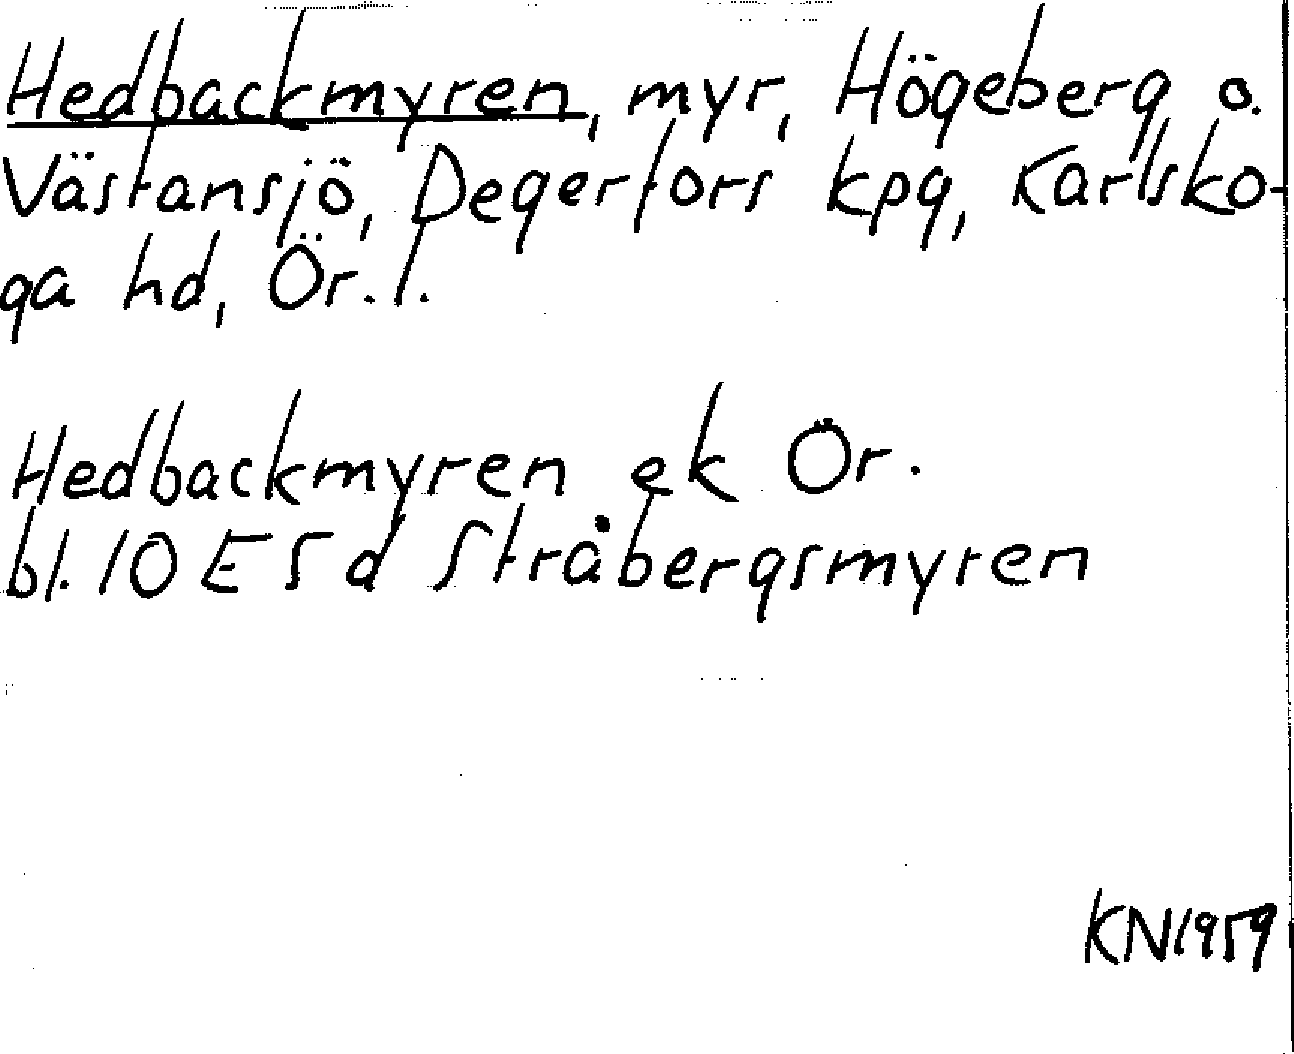 Hedbackmyren, myr, Högeberg o.
Västansjö, Degerfors kpg, Karlsko-
ga hd, Ör. l.
Hedbackmyren ek Ör.
bl. 10 E 5 d Stråbergsmyren
KN1959